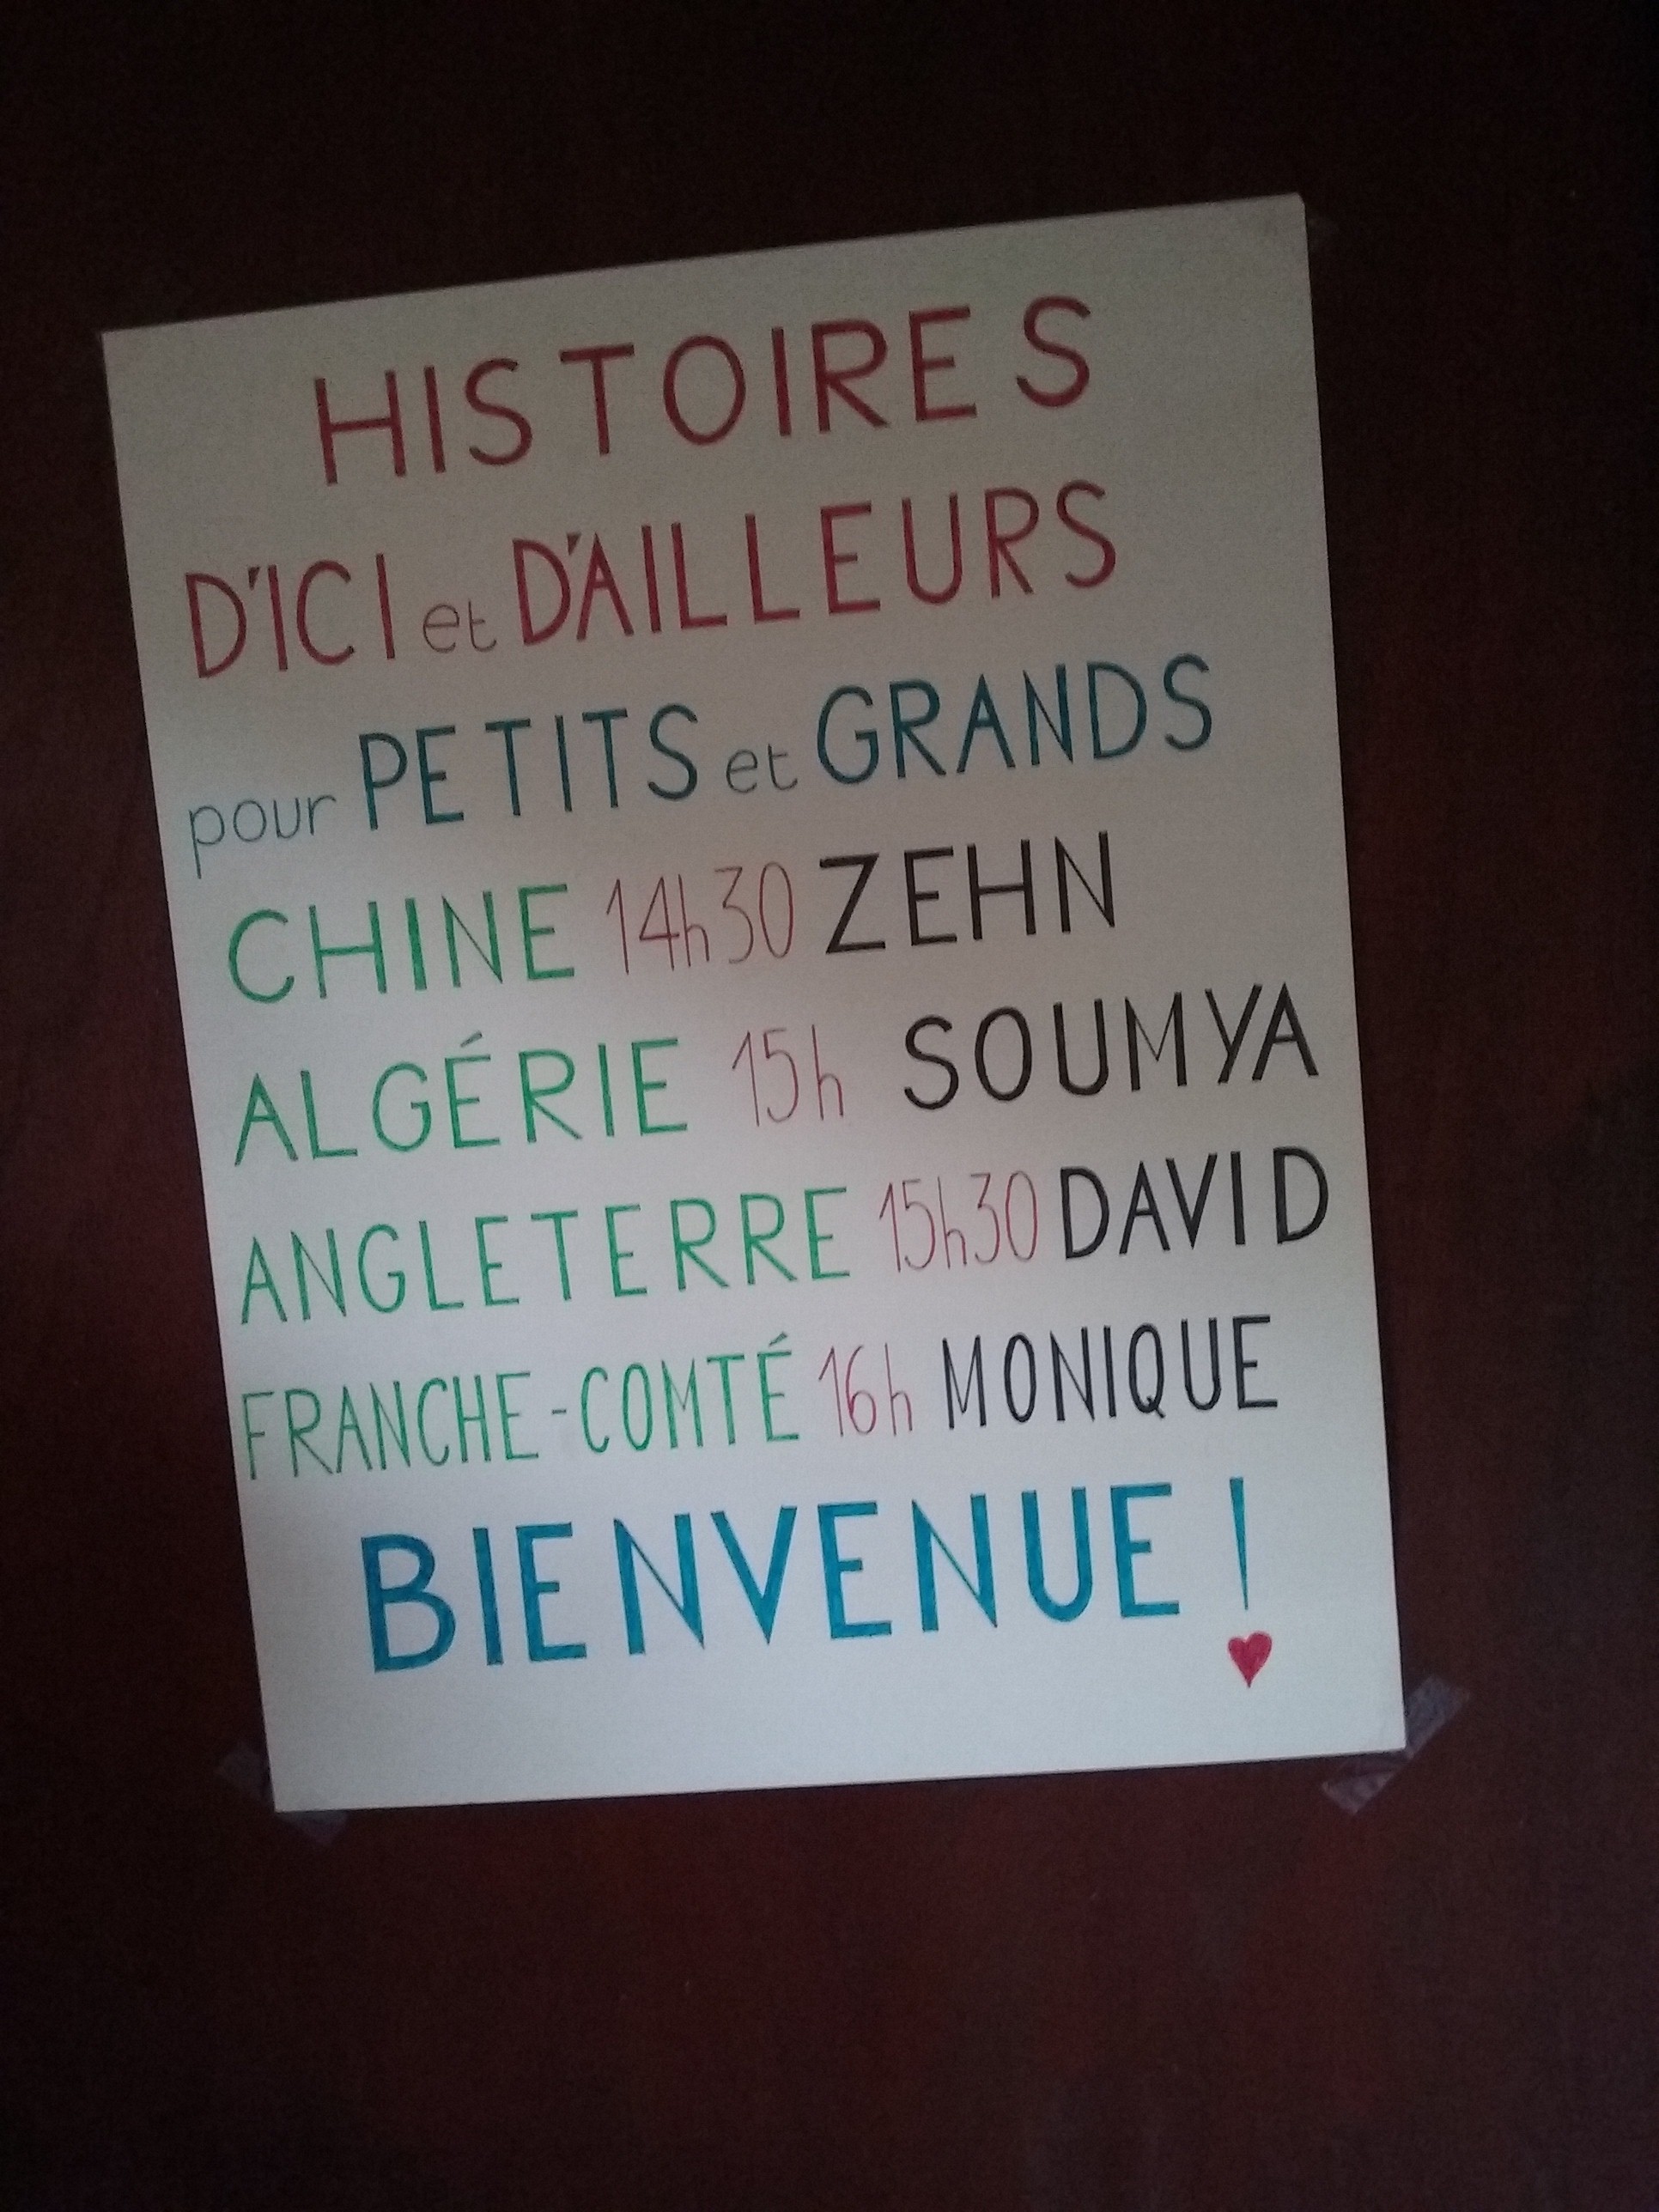 HISTOIRES
D'ICI et D'AILLEURS
pour PETITS et GRANDS
CHINE 14h30 ZEHN
ALGÉRIE 15h SOUMYA
ANGLETERRE 15h30 DAVID
FRANCHE-COMTÉ 16h MONIQUE
BIENVENUE !